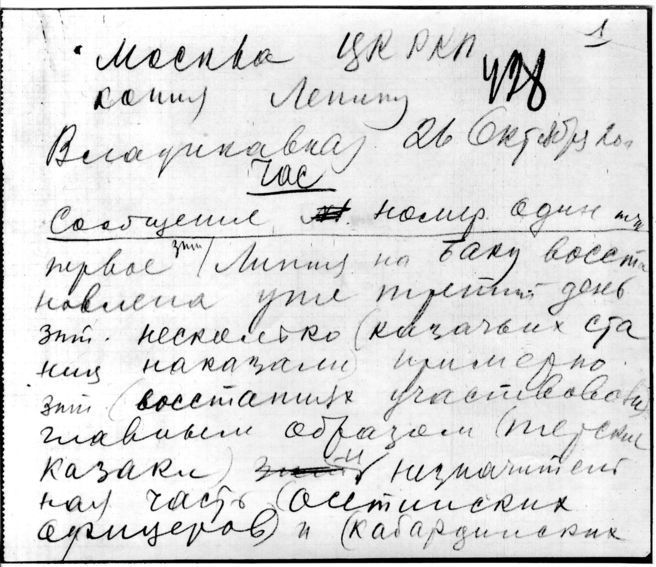 1
Москва ЦК РКП
копия Ленину
Владикавказ 26 Октября 20
час
Сообщение номер один тчк
первое зпт Линия на Баку восста
новлена уже третий день
зпт. несколько (казачьих ста
ниц наказали) примерно
зпт (восставших участвовали
главным образом (терские
казаки) и незначитель
ная часть (осетинских
офицеров) и (кабардинских